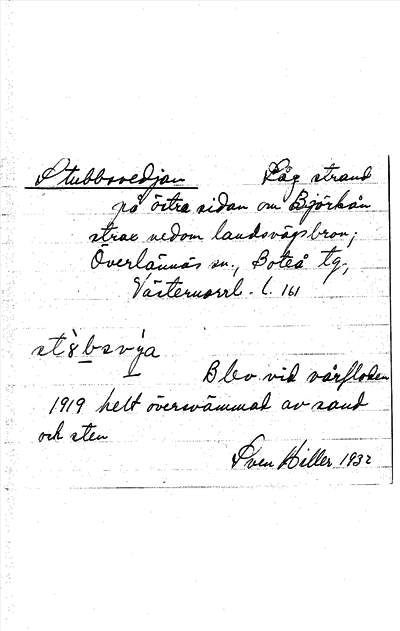 Stubbsvedjan Låg strand
på östra sidan om Björkån
strax nedom landsvägsbron;
Överlännäs sn., Boteå tg.,
Västernorrl. l. 161
Blev vid vårfloden
1919 helt översvämmad av sand
och sten
Sven Hiller 1932